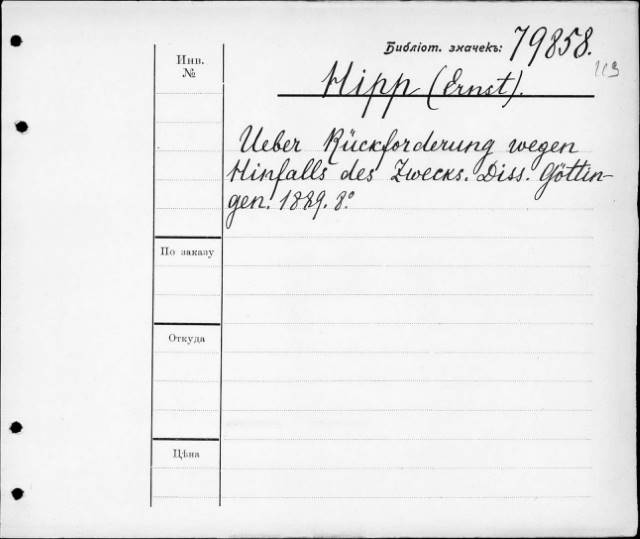 Библіот. значекъ: 79858.
113
Инв.
№
Hipp (Ernst).
Ueber Rückforderung wegen
Hinfalls des Zwecks. Diss. Göttin-
gen. 1889. 8°
По заказу
Откуда
Цѣна